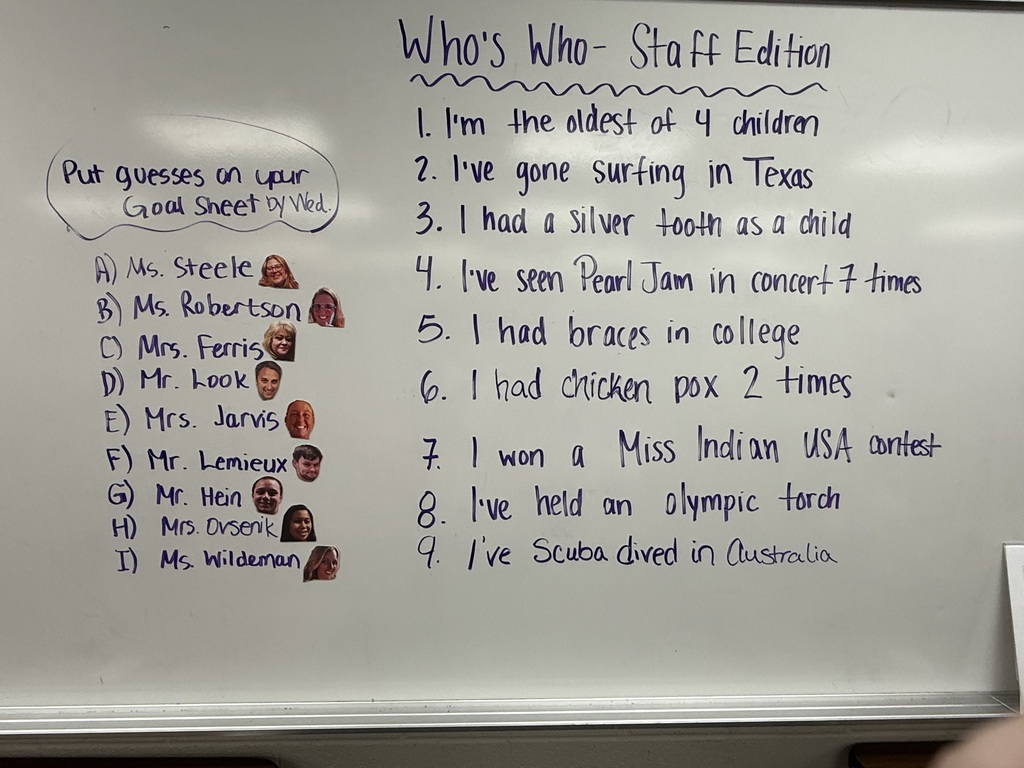 Who's Who- Staff Edition
Put guesses on your
Goal Sheet by Wed.
A) Ms. Steele
B) Ms. Robertson
C) Mrs. Ferris
D) Mr. Look
E) Mrs. Jarvis
F) Mr. Lemieux
G) Mr. Hein
H) Mrs. Ovsenik
I) Ms. Wildeman
1. I'm the oldest of 4 children
2. I've gone surfing in Texas
3. I had a silver tooth as a child
4. I've seen Pearl Jam in concert 7 times
5. I had braces in college
6. I had chicken pox 2 times
7. I won a Miss Indian USA contest
8. I've held an olympic torch
9. I've Scuba dived in Australia